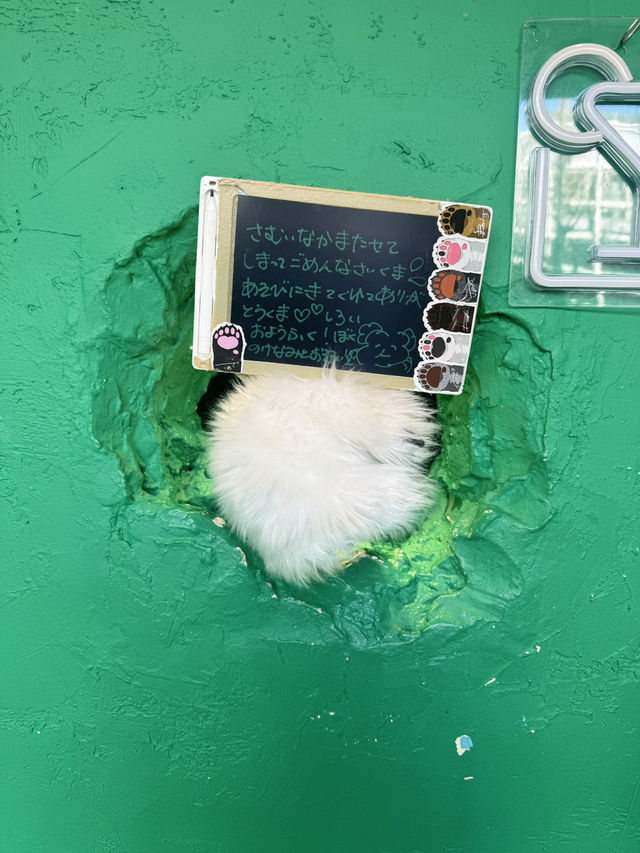 さむいなかまたせて
しまってごめんなさいくま
あそびにきてくれてありが
とうくま♡♡しろい
おようふく！ぼくと
のけなみとおそろい